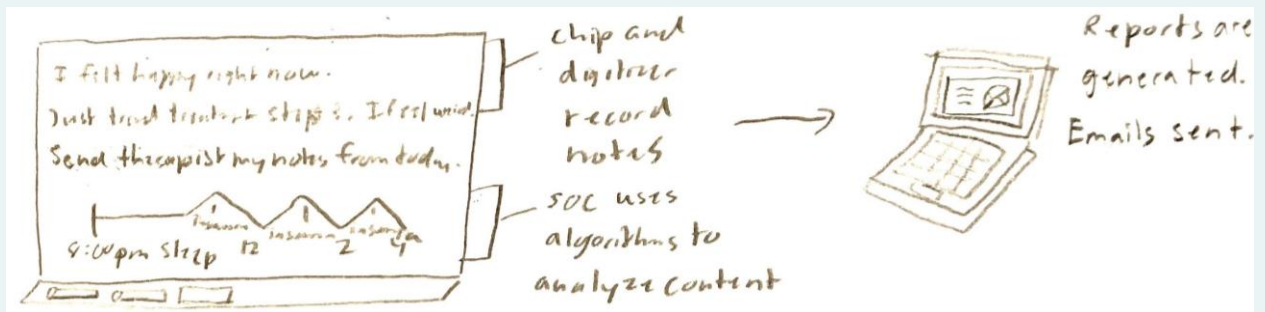 I felt happy right now.
Just tried treatment step 2. I feel weird.
Send therapist my notes from today.
insomnia insomnia insomnia
8:00pm sleep 12 2 4
chip and
digitizer
record
notes
SOC uses
algorithms to
analyze content
Reports are
generated.
Emails sent.